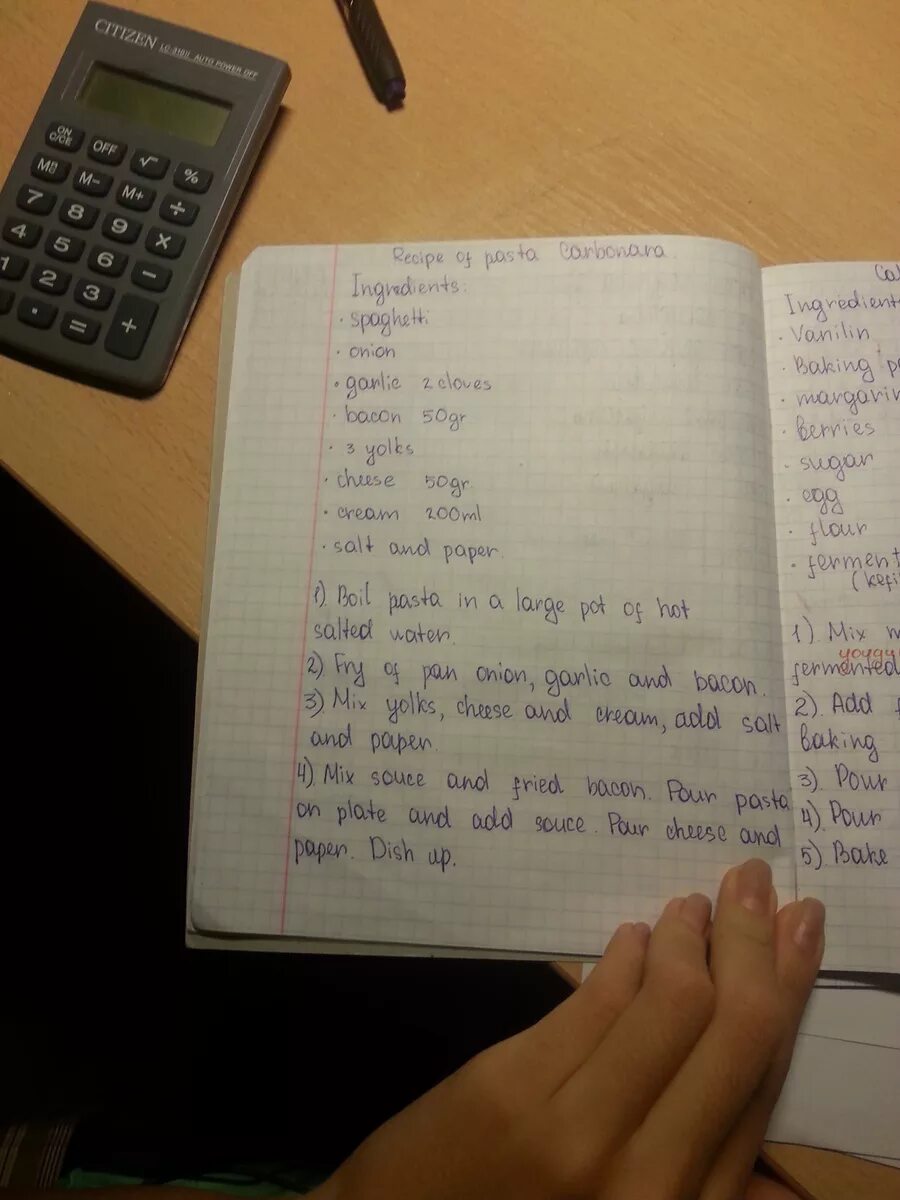 CITIZEN
LC-310II AUTO POWER OFF
ON C/CE OFF √ %
M− M+ ÷
7 8 9 X
4 5 6 −
1 2 3 +
. =
Recipe of pasta Carbonara.
Ingredients:
· spaghetti
· onion
· garlic 2 cloves
· bacon 50gr
· 3 yolks
· cheese 50gr.
· cream 200ml
· salt and paper.
1). Boil pasta in a large pot of hot
salted water.
2). Fry of pan onion, garlic and bacon.
3). Mix yolks, cheese and cream, add salt
and paper.
4). Mix souce and fried bacon. Pour pasta
on plate and add souce. Pour cheese and
paper. Dish up.
Ingredient
· Vanilin
· Baking
· margarin
· berries
· sugar
· egg
· flour
· ferment
(kefi
1). Mix
fermented
2). Add
baking
3). Pour
4). Pour
5). Bake